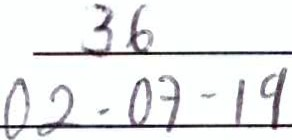 36
02-07-19